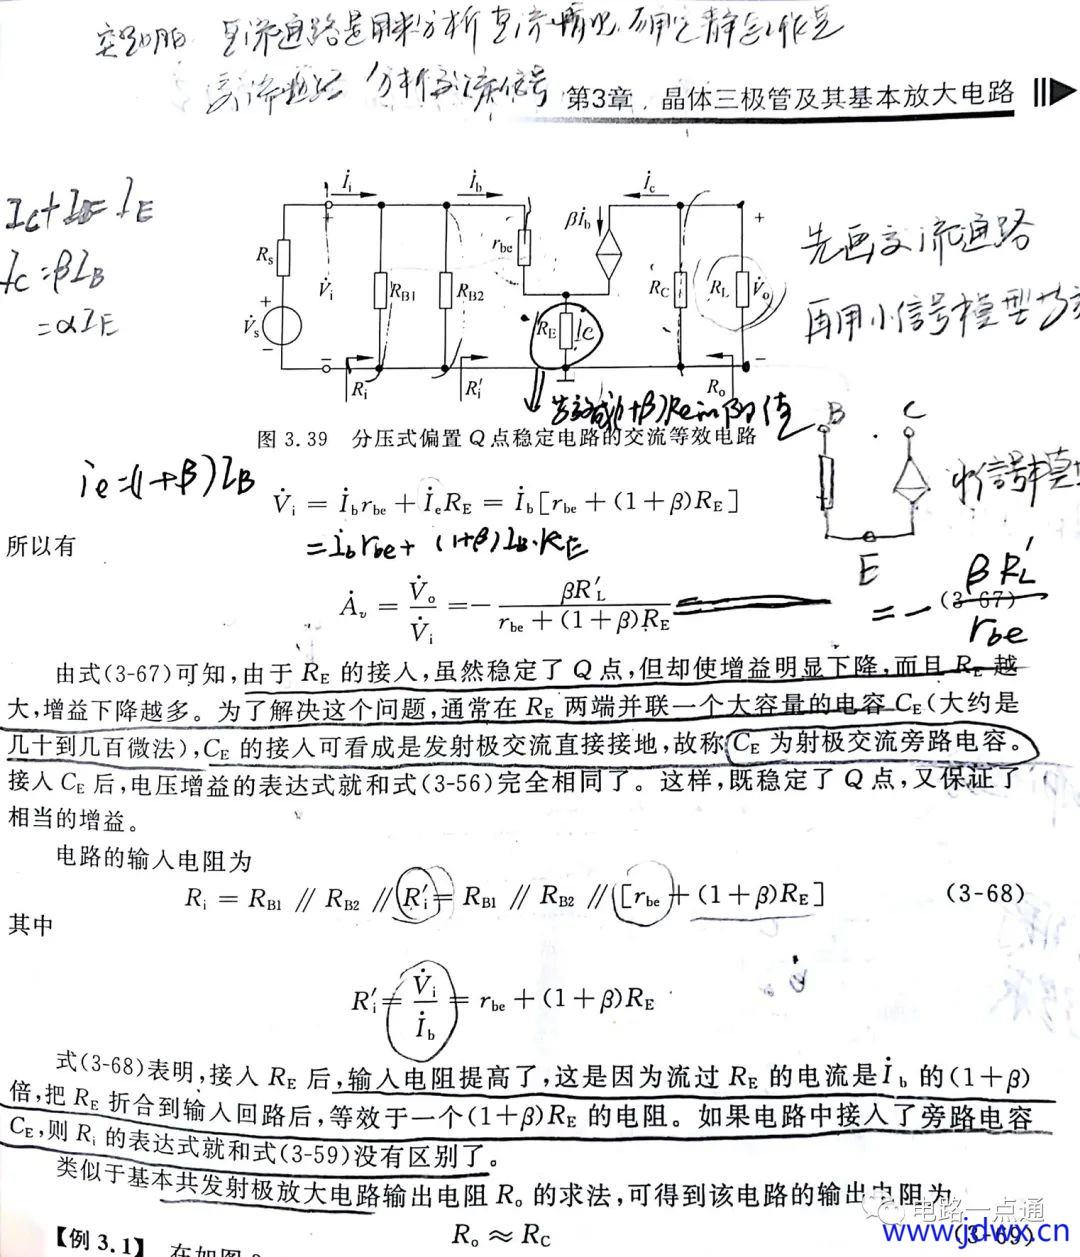 直流通路是用来分析直流情况,确定静态工作点
交流通路 分析交流信号
第3章 晶体三极管及其基本放大电路
Ic+IB=IE
Ic=βIB
=αIE
İi İb İc
Rs rbe βİb
V̇i RB1 RB2 RC RL V̇o
V̇s RE
Ri R′i Ro
先画交流通路
再用小信号模型
等效成(1+β)Re的阻值
图 3.39 分压式偏置 Q 点稳定电路的交流等效电路
B C
E
小信号模
ie=(1+β)IB
V̇i = İb rbe + İe RE = İb[rbe + (1+β)RE]
所以有
=İb rbe+(1+β)IB·RE
Ȧv = V̇o/V̇i = − βR′L/(rbe + (1+β)RE) (3-67)
= − βR′L/rbe
由式(3-67)可知,由于 RE 的接入,虽然稳定了 Q 点,但却使增益明显下降,而且 RE 越
大,增益下降越多。为了解决这个问题,通常在 RE 两端并联一个大容量的电容 CE(大约是
几十到几百微法),CE 的接入可看成是发射极交流直接接地,故称 CE 为射极交流旁路电容。
接入 CE 后,电压增益的表达式就和式(3-56)完全相同了。这样,既稳定了 Q 点,又保证了
相当的增益。
电路的输入电阻为
Ri = RB1 // RB2 // R′i = RB1 // RB2 // [rbe + (1+β)RE] (3-68)
其中
R′i = V̇i/İb = rbe + (1+β)RE
式(3-68)表明,接入 RE 后,输入电阻提高了,这是因为流过 RE 的电流是 İb 的(1+β)
倍,把 RE 折合到输入回路后,等效于一个(1+β)RE 的电阻。如果电路中接入了旁路电容
CE,则 Ri 的表达式就和式(3-59)没有区别了。
类似于基本共发射极放大电路输出电阻 Ro 的求法,可得到该电路的输出电阻为
Ro ≈ RC (3-69)
【例 3.1】 在如图
电路一点通
www.jdwx.cn